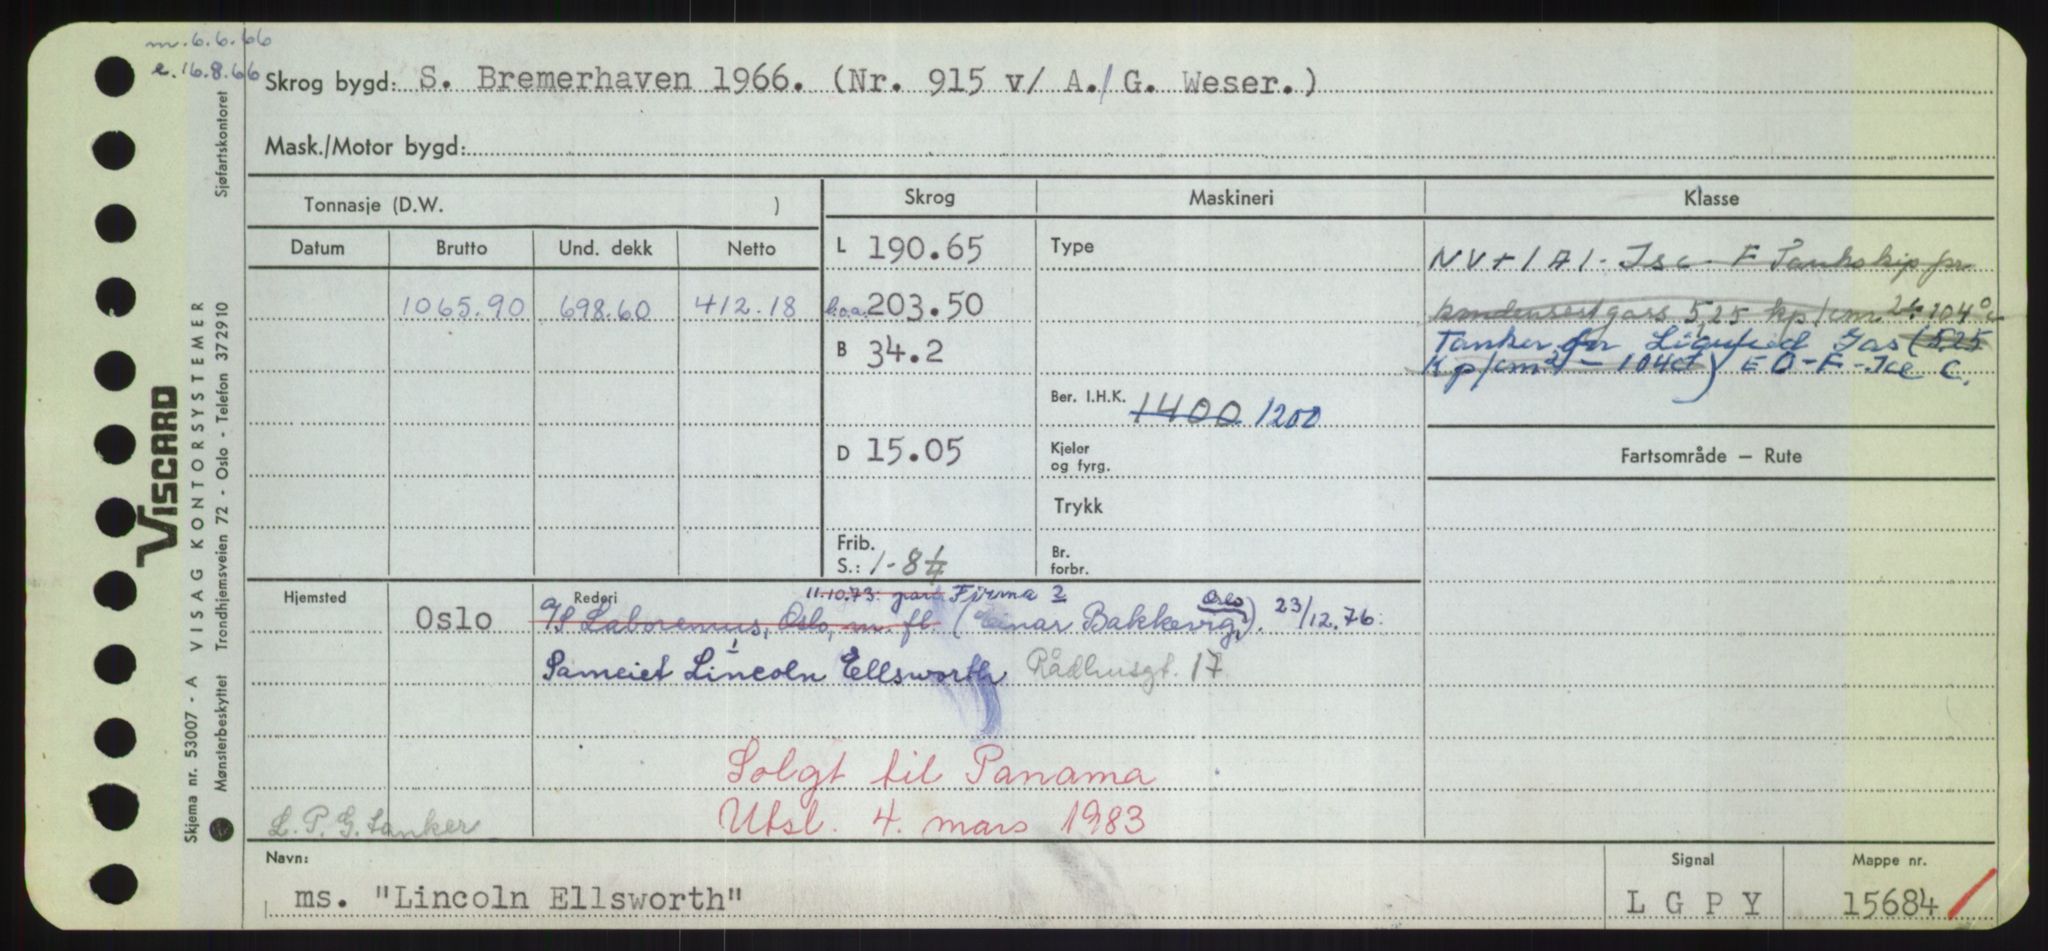 m. 6.6.66
e. 16.8.66
Skrog bygd: S. Bremerhaven 1966. (Nr. 915 v/ A./G. Weser.)
Mask./Motor bygd:
Tonnasje (D.W. )
Skrog Maskineri Klasse
Datum Brutto Und. dekk Netto
1065.90 698.60 412.18
L 190.65
b.o.a. 203.50
B 34.2
D 15.05
Frib.
S.: 1-84
Type
Ber. I.H.K. 1400 1200
Kjeler
og fyrg.
Trykk
Br.
forbr.
NV+1A1- Isc - F Tankskip for
kondensert gass 5,25 kp/cm2 ÷ 104° c
Tanker for Liquified Gas (5.25
Kp/cm2) - 104ct) EO-F-Ice C.
Fartsområde — Rute
Hjemsted Oslo
Rederi
11.10.73: part. Firma 2
A/S Laboremus, Oslo, m. fl. (Einar Bakkevig, Oslo). 23/12.76:
Sameiet Lincoln Ellsworth Rådhusgt. 17
Solgt til Panama
Utsl. 4. mars 1983
L. P. G. tanker
Navn:
ms. "Lincoln Ellsworth"
Signal
L G P Y
Mappe nr.
15684
VISCARD
Skjema nr. 53007 - A VISAG KONTORSYSTEMER
Mønsterbeskyttet Trondhjemsveien 72 - Oslo - Telefon 372910 Sjøfartskontoret